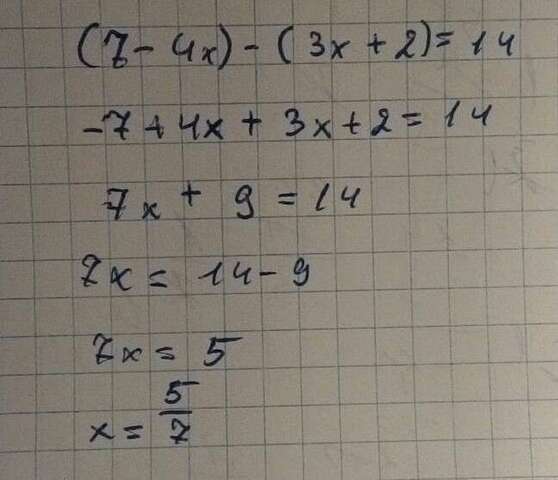 (7 - 4x) - (3x + 2) = 14
-7 + 4x + 3x + 2 = 14
7x + 9 = 14
7x = 14 - 9
7x = 5
x = 5/7